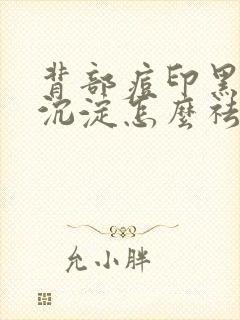 背部痘印黑
沉淀怎麼祛
允小胖